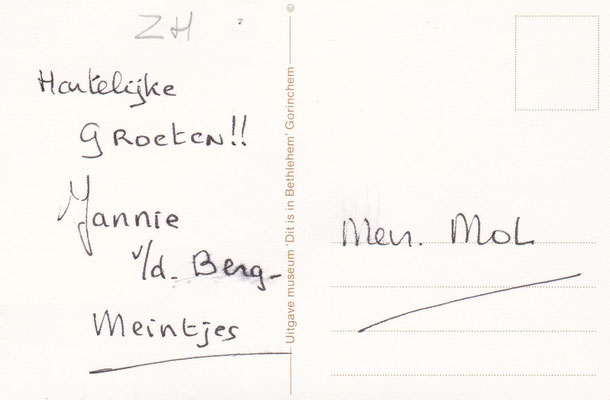 ZH
Hartelijke
GROETEN!!
Jannie
v/d. Berg-
Meintjes
Uitgave museum 'Dit is in Bethlehem' Gorinchem ©
Mevr. Mol